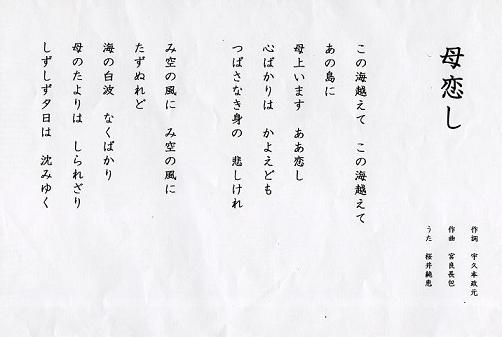 母恋し
作詞　宇久本政元
作曲　宮良長包
うた　桜井純恵
この海越えて　この海越えて
あの島に
母上います　ああ恋し
心ばかりは　かよえども
つばさなき身の　悲しけれ
み空の風に　み空の風に
たずぬれど
海の白波　なくばかり
母のたよりは　しられざり
しずしず夕日は　沈みゆく